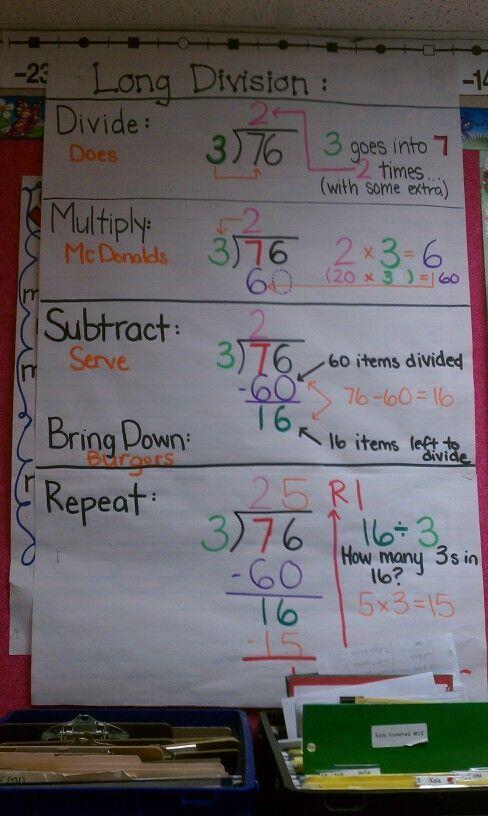 -23
-14
Long Division:
Divide:
Does
2
3)76
3 goes into 7
2 times...
(with some extra)
Multiply:
McDonalds
2
3)76
60
2 x 3 = 6
(20 x 3) = 60
Subtract:
Serve
2
3)76
-60
16
60 items divided
76-60=16
16 items left to
divide
Bring Down:
Burgers
Repeat:
25 R1
3)76
-60
16
-15
1
16÷3
How many 3s in
16?
5x3=15